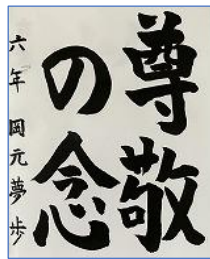 尊敬
の念
六年 岡元夢歩